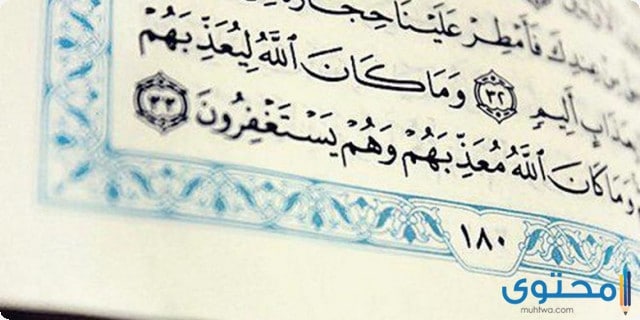 عِندِكَ فَأَمْطِرْ عَلَيْنَا حِجَارَةً
أَلِيمٍ ٣٢ وَمَا كَانَ ٱللَّهُ لِيُعَذِّبَهُمْ
وَمَا كَانَ ٱللَّهُ مُعَذِّبَهُمْ وَهُمْ يَسْتَغْفِرُونَ ٣٣
١٨٠
محتوى
muhtwa.com